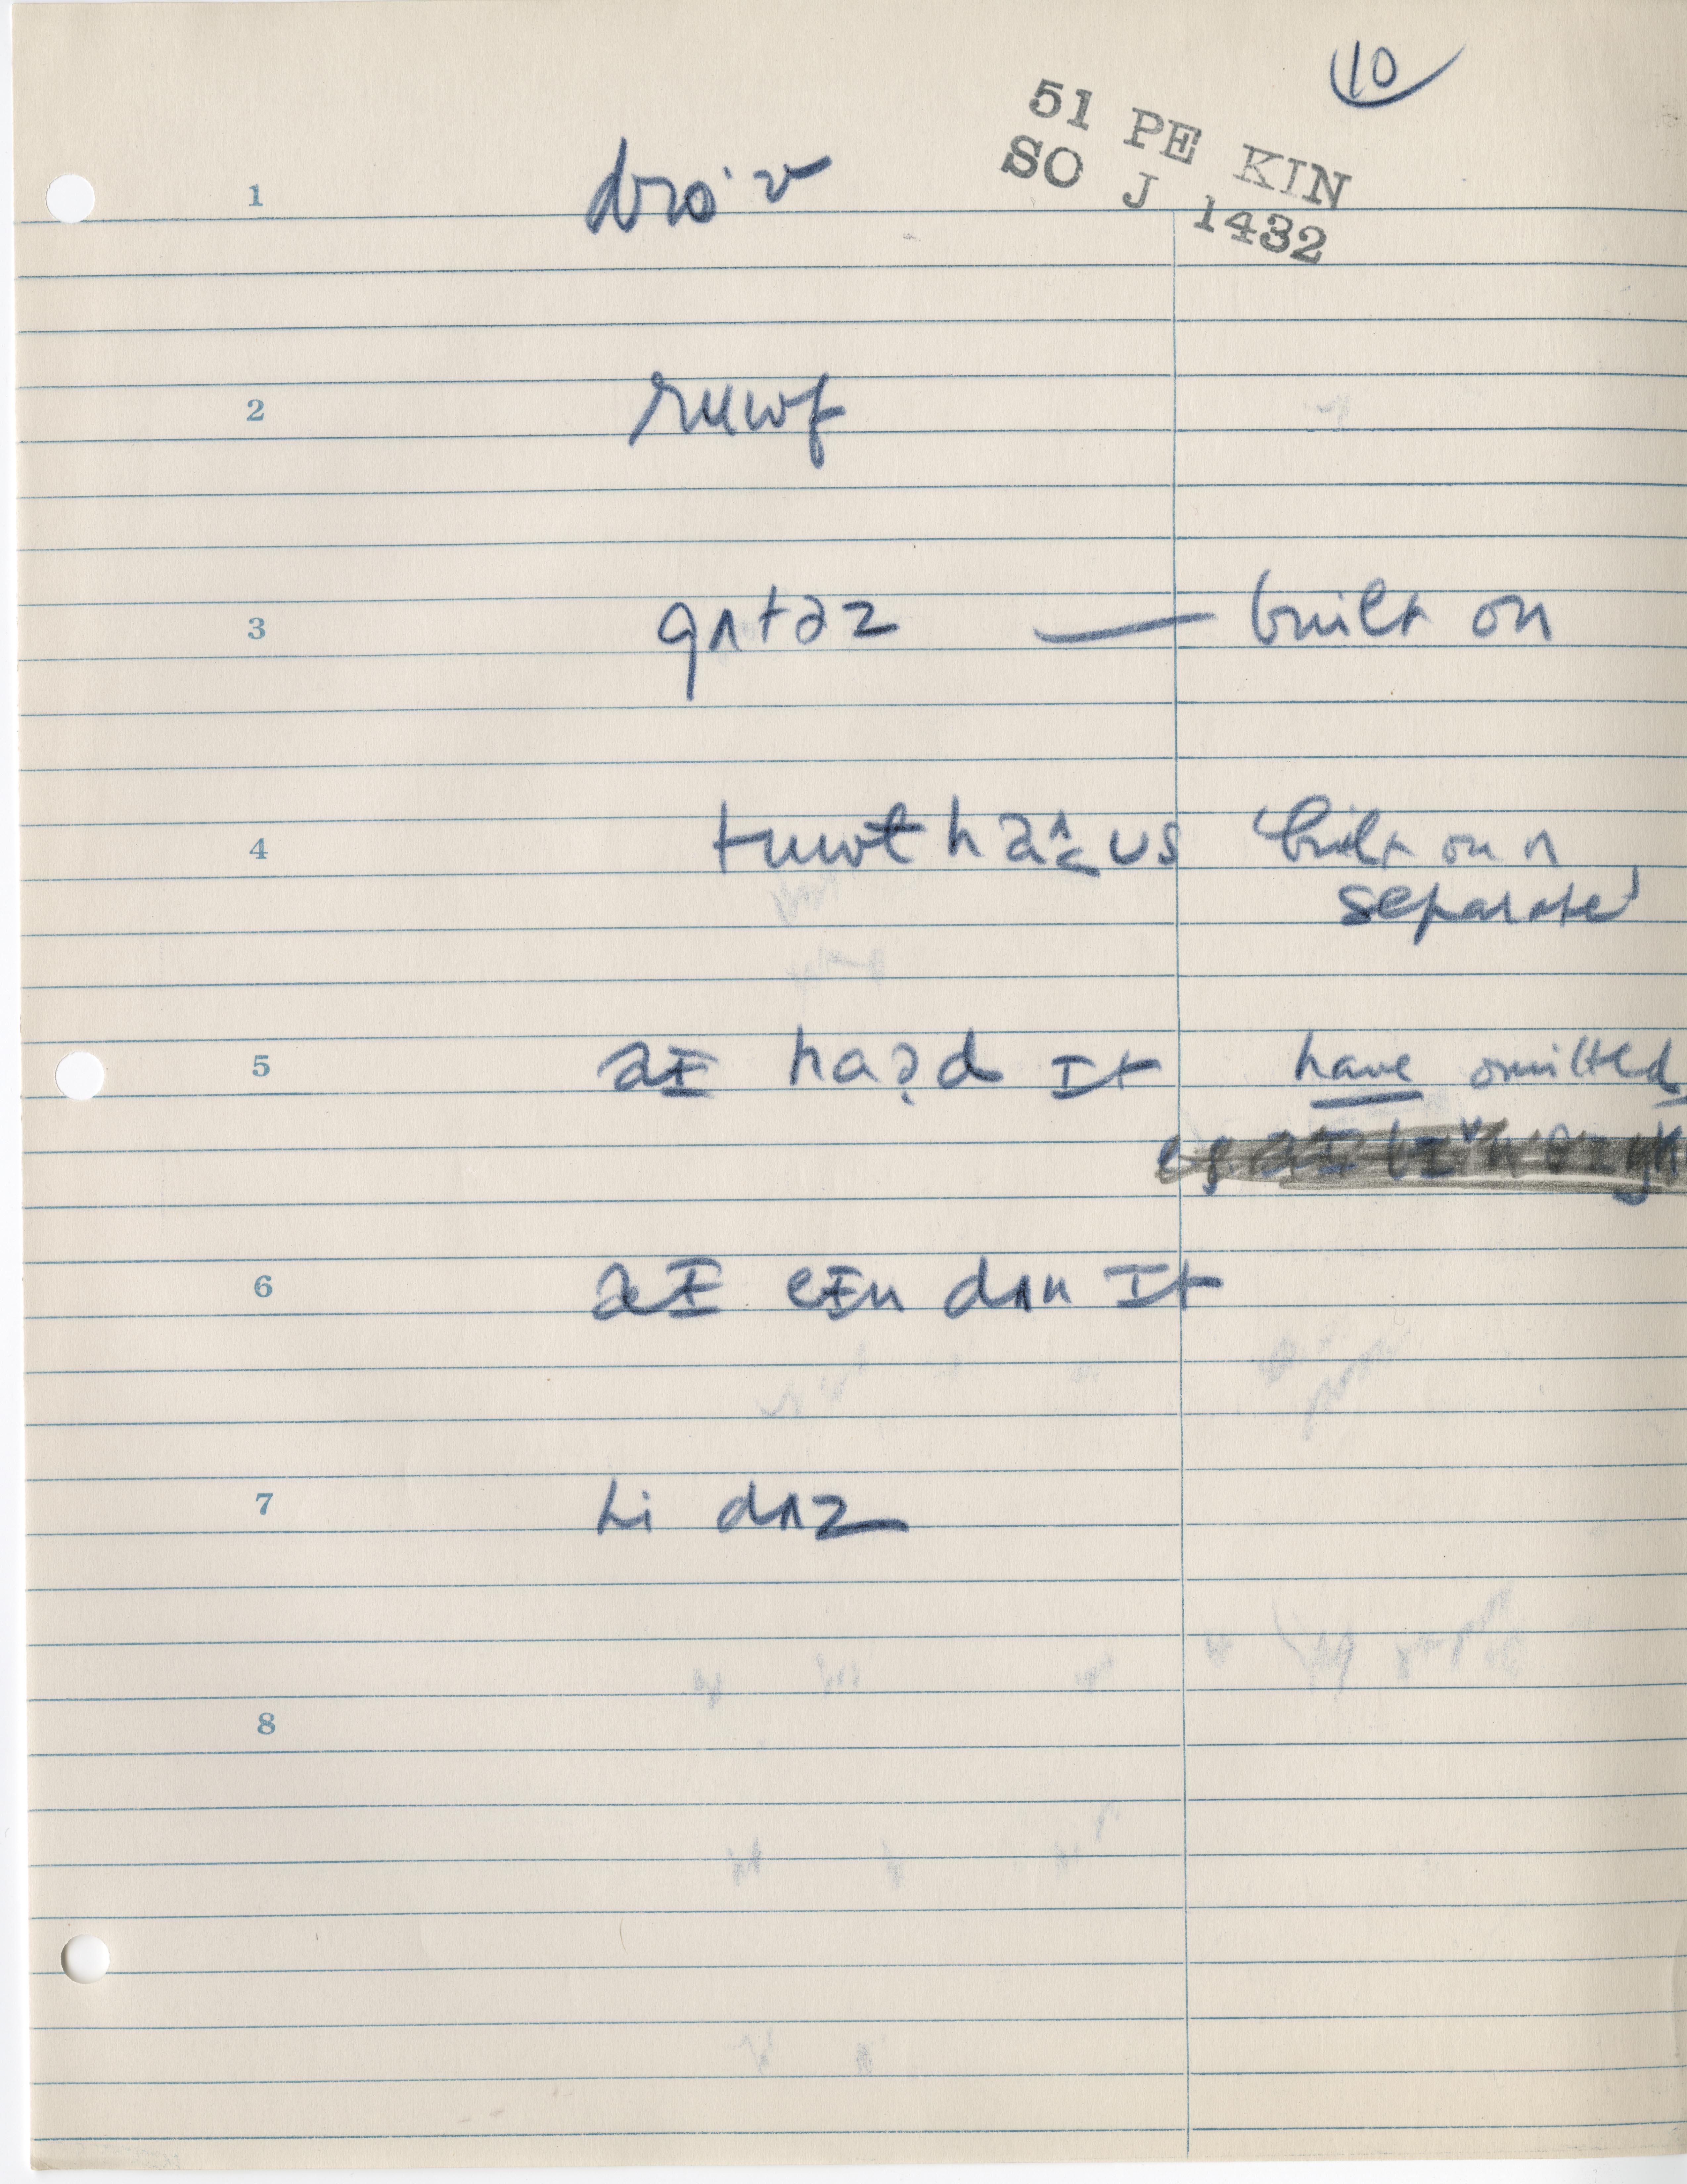 10
51 PE KIN
SO J 1432
1 dro·v
2 ruwf
3 gʌtəz — built on
4 tuwlt haʊs built on or
separated
5 aɪ haəd ɪt have omitted
eg
6 aɪ eɪn dʌn ɪt
7 hi dʌz
8